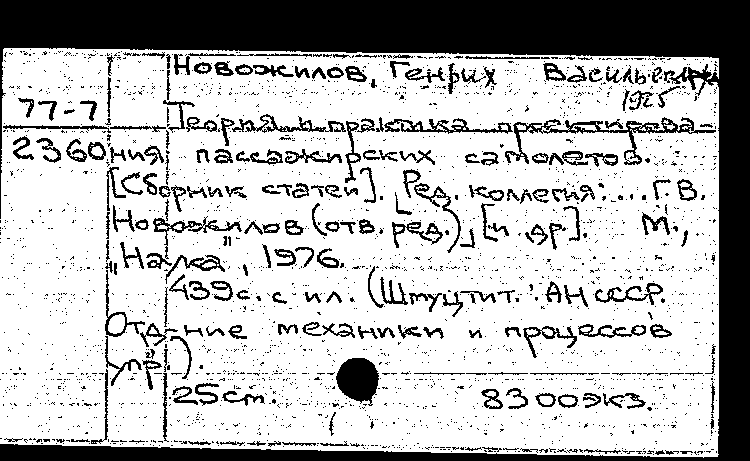 Новожилов, Генрих Васильевич
1925
77-7 Теория и практика проектирова-
2360 ния пассажирских самолетов.
[Сборник статей]. Ред. коллегия: ... Г.В.
Новожилов (отв. ред.), [и др]. М.,
"Наука", 1976.
439с. с ил. (Штуцтит.: АН СССР.
Отд-ние механики и процессов
упр.").
25 ст. 8300экз.